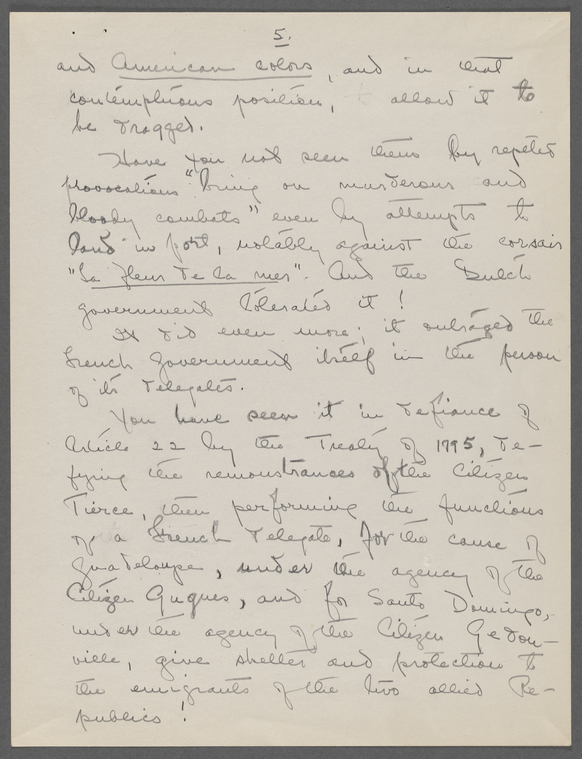 5.
and American colors, and in that
contemptuous position, to allow it to
be dragged.
Have you not seen them by repeted
provocations "bring on murderous and
bloody combats" even by attempts to
land in port, notably against the corsair
"La fleur de la mer". And the Dutch
government tolerated it!
It did even more; it outraged the
French Government itself in the person
of its delegates.
You have seen it in defiance of
Article 22 by the Treaty of 1795, de-
fying the remonstrances of the Citizen
Tierce, then performing the functions
of a French delegate, for the cause of
Guadeloupe, under the agency of the
Citizen Gugues, and for Santo Domingo,
under the agency of the Citizen Gedou-
ville, give shelter and protection to
the emigrants of the two allied Re-
publics!